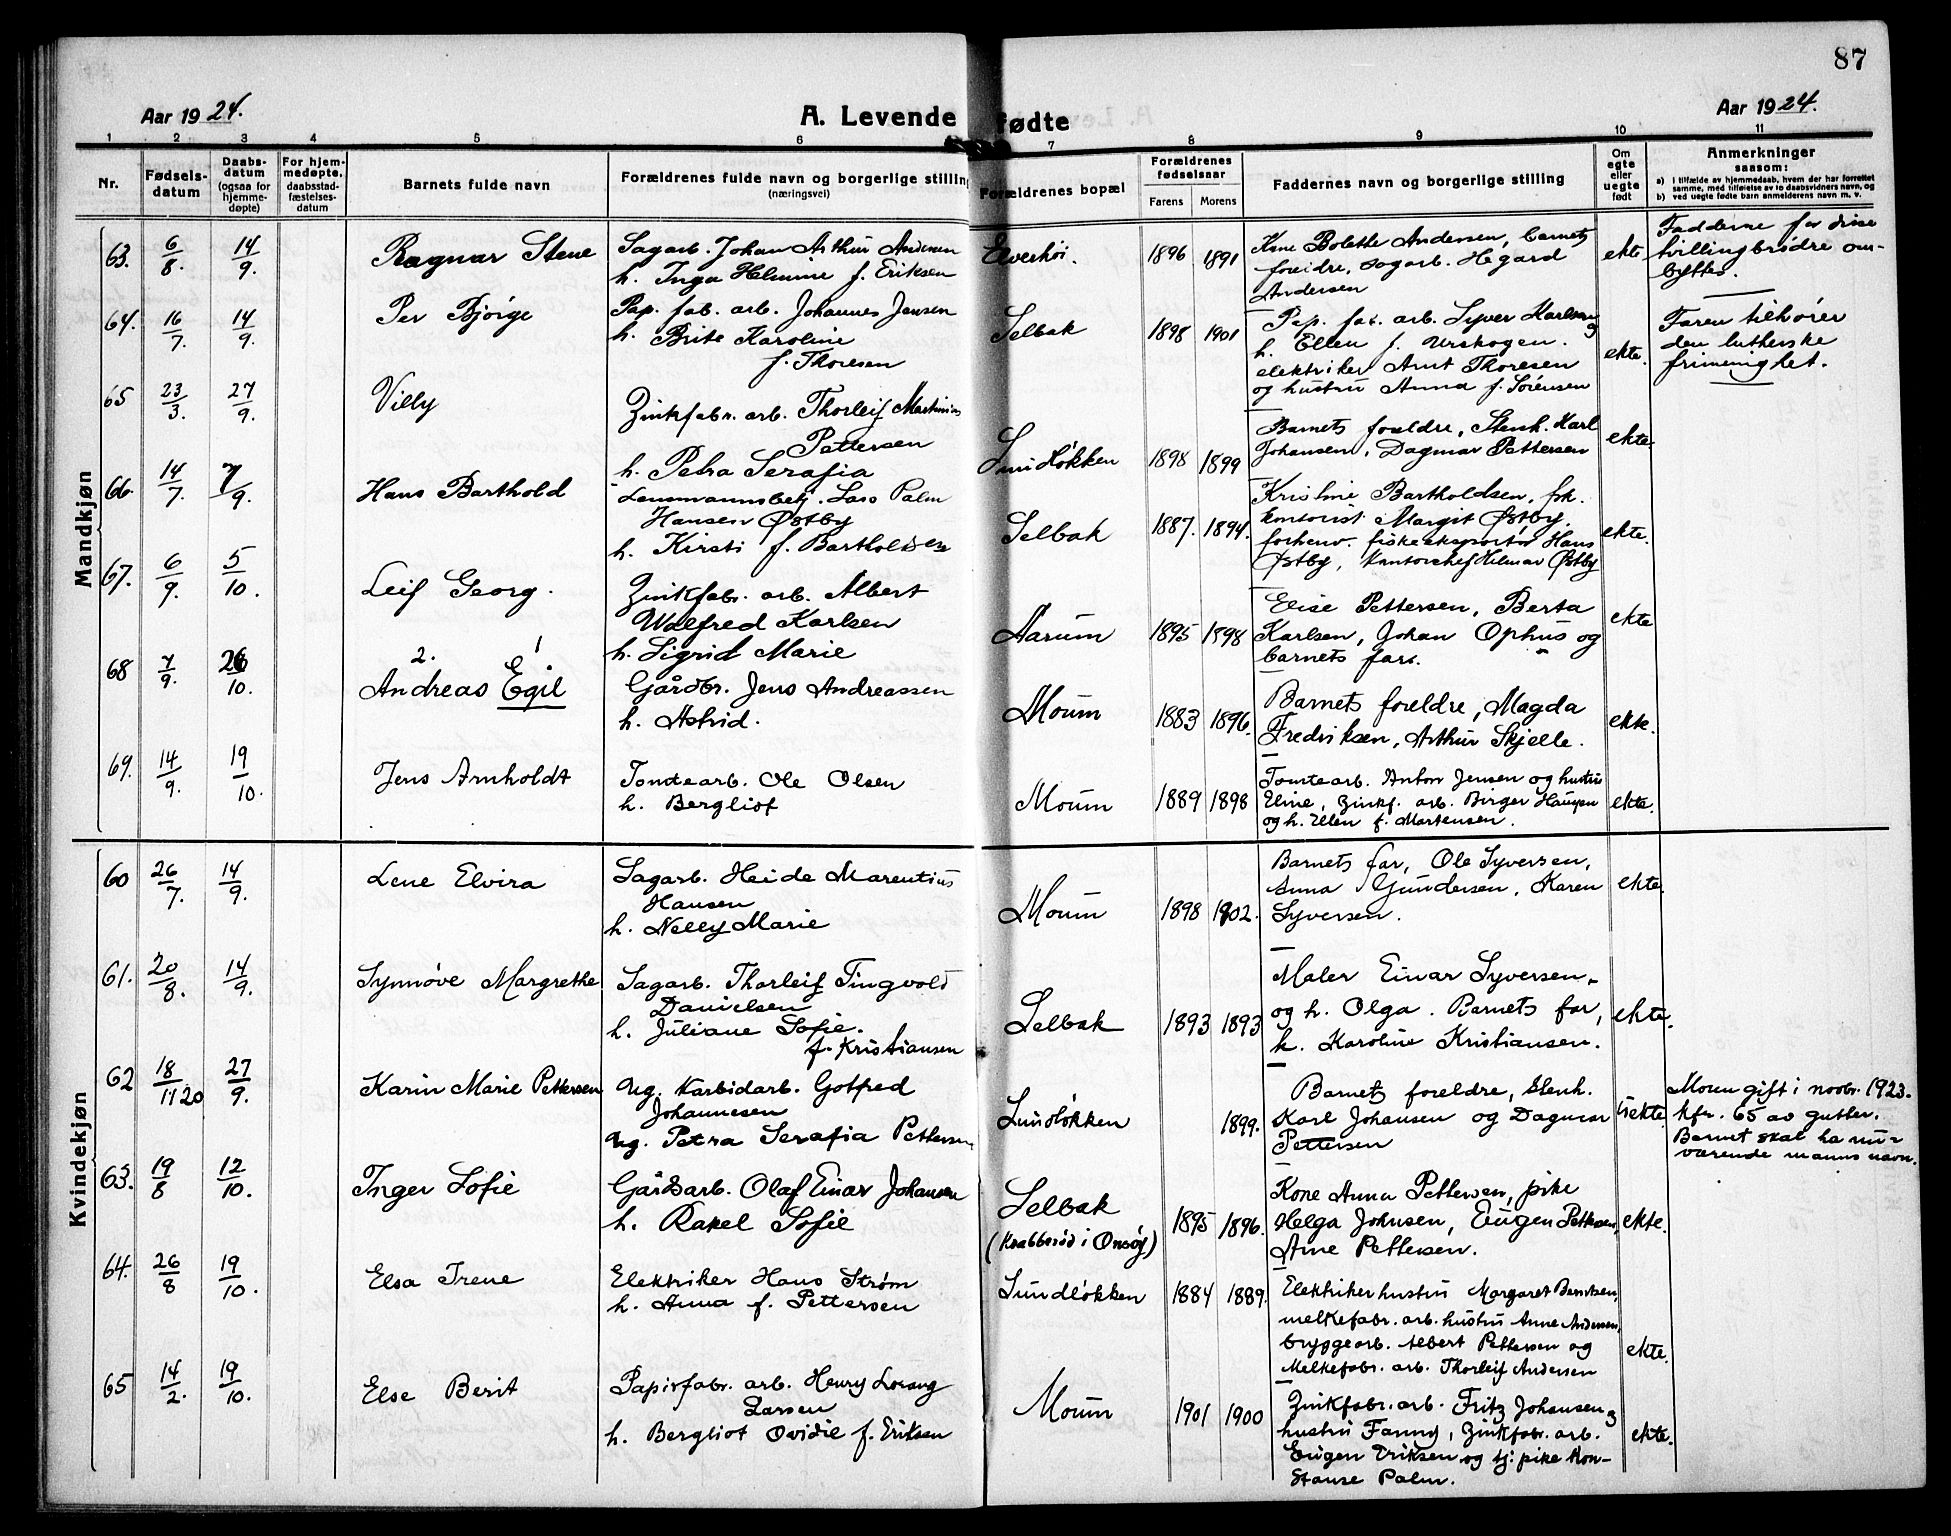 87
Aar 1924.
A. Levende fødte
Aar 1924.
1 2 3 4 5 6 7 8 9 10 11
Nr.
Fødsels-
datum
Daabs-
datum
(ogsaa for
hjemme-
døpte)
For hjem-
medøpte,
daabsstad-
fæstelses-
datum
Barnets fulde navn
Forældrenes fulde navn og borgerlige stilling
(næringsvei)
Forældrenes bopæl
Forældrenes
fødselsaar
Farens Morens
Faddernes navn og borgerlige stilling
Om
egte
eller
uegte
født
Anmerkninger
saasom:
a) i tilfælde av hjemmedaab, hvem der har forrettet
samme, med tilføielse av to daabsvidners navn, og
b) ved uegte fødte barn anmelderens navn m. v.
Mandkjøn
63. 6/8. 14/9. Ragnar Stene
Sagarb. Johan Arthur Andersen
h. Inga Helmine f. Eriksen
Elverhöi. 1896 1891
Kone Bolette Andersen, barnets
foreldre, sagarb. Hegard
Andersen
ekte
Fadderne for disse
tvillingbrödre om-
byttes.
64. 16/7. 14/9. Per Björge
Pap. fab. arb. Johannes Jensen
h. Brite Karoline
f. Thoresen
Selbak 1898 1901
Pap. fab. arb. Syver Karlsen og
h. Ellen f. Urskogen.
elektriker Arnt Thoresen
og hustru Anna f. Sörensen
ekte.
Faren tilhörer
den lutherske
frimenighet.
65 23/3. 27/9. Villy
Zinkfabr. arb. Thorleif Martinius
Pettersen
h. Petra Serafia
Lundløkken 1898 1899
Barnets foreldre, Stenh. Karl
Johansen, Dagmar Pettersen
ekte.
66. 14/7. 7/9. Hans Barthold
Lensmannsbetj. Lars Palm
Hansen Østby
h. Kirsti f. Bartholdsen
Selbak 1887. 1894.
Kristine Bartholdsen, frk.
kontorist Margit Østby,
forhenv. fiskeeksportör Hans
Østby, kontorchef Hilmar Østby
ekte.
67. 6/9. 5/10. Leif Georg.
Zinkfabr. arb. Albert
Walfred Karlsen
h. Sigrid Marie
Aarum 1895 1898
Elise Pettersen, Berta
Karlsen, Johan Ophus og
barnets far.
ekte
68 7/9. 26/10. 2. 1
Andreas Egil
Gårdbr. Jens Andreassen
h. Astrid.
Moum 1883 1896.
Barnets foreldre, Magda
Fredriksen, Arthur Skjelle.
ekte.
69. 14/9. 19/10. Jens Arnholdt
Tomtearb. Ole Olsen
h. Bergliot
Moum 1889 1898
Tomtearb. Anton Jensen og hustru
Eline, Zinkf. arb. Birger Hansen
og h. Ellen f. Martensen.
ekte.
Kvindekjøn
60 26/7. 14/9. Lene Elvira
Sagarb. Heide Marentius
Hansen
h. Nelly Marie
Moum 1898 1902.
Barnets far, Ole Syversen,
Anna Gundersen, Karen
Syversen.
ekte.
61. 20/8. 14/9. Synnöve Margrethe
Sagarb. Thorleif Tingvold
Danielsen
h. Juliane Sofie.
f. Kristiansen
Selbak 1893 1893
Maler Einar Syversen
og h. Olga. Barnets far,
k. Karoline Kristiansen.
ekte.
62 18/11 20 27/9. Karin Marie Pettersen
Ug. Karbidarb. Gotfred
Johannesen
Ug. Petra Serafia Pettersen
Lundløkken 1899.
Barnets foreldre, Stenh.
Karl Johansen og Dagmar
Pettersen
üekte
Moren gift i novbr. 1923.
kfr. 65 av gutter.
Barnet skal ha nu-
værende manns navn.
63. 19/8 12/10. Inger Sofie
Gårdsarb. Olaf Einar Johansen
h. Rakel Sofie
Selbak
(Krabberöd i Onsöy)
1895 1896.
Kone Anna Pettersen, pike
Helga Johnsen, Eugen Pettersen,
Arne Pettersen.
ekte.
64. 26/8 19/10. Elsa Irene
Elektriker Hans Strøm
h. Anna f. Pettersen
Lundløkken 1884 1889.
Elektriker hustru Margaret Berntsen,
melkefabr. arb. hustru Anne Andersen,
bryggearb. Albert Pettersen og
Melkefabr. arb. Thorleif Andersen
ekte.
65 14/2. 19/10. Else Berit
Papirfabr. arb. Henry Lorang
Larsen
h. Bergliot Ovidie f. Eriksen
Moum 1901 1900
Zinkfabr. arb. Fritz Johansen og
hustru Fanny, Zinkfabr. arb.
Eugen Eriksen og tj. pike Kon-
stanse Palm.
ekte.